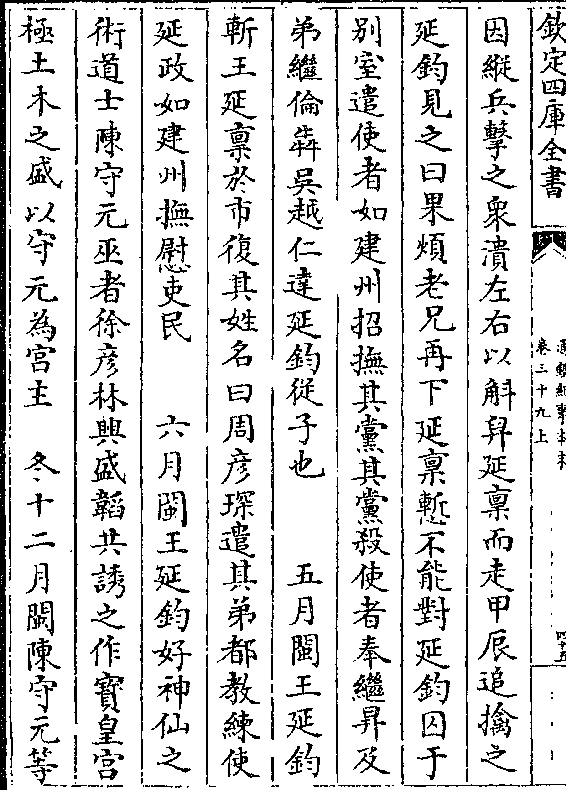 欽定四庫全書
卷三十九上
因縱兵擊之衆潰左右以斛舁延稟而走甲辰追擒之
延鈞見之曰果煩老兄再下延稟慙不能對延鈞囚于
别室遣使者如建州招撫其黨其黨殺使者奉繼昇及
弟繼倫犇吳越仁達延鈞從子也　五月閩王延鈞
斬王延稟於市復其姓名曰周彦琛遣其弟都教練使
延政如建州撫慰吏民　六月閩王延鈞好神仙之
術道士陳守元巫者徐彦林興盛韜共誘之作寳皇宫
極土木之盛以守元為宫主　冬十二月閩陳守元等